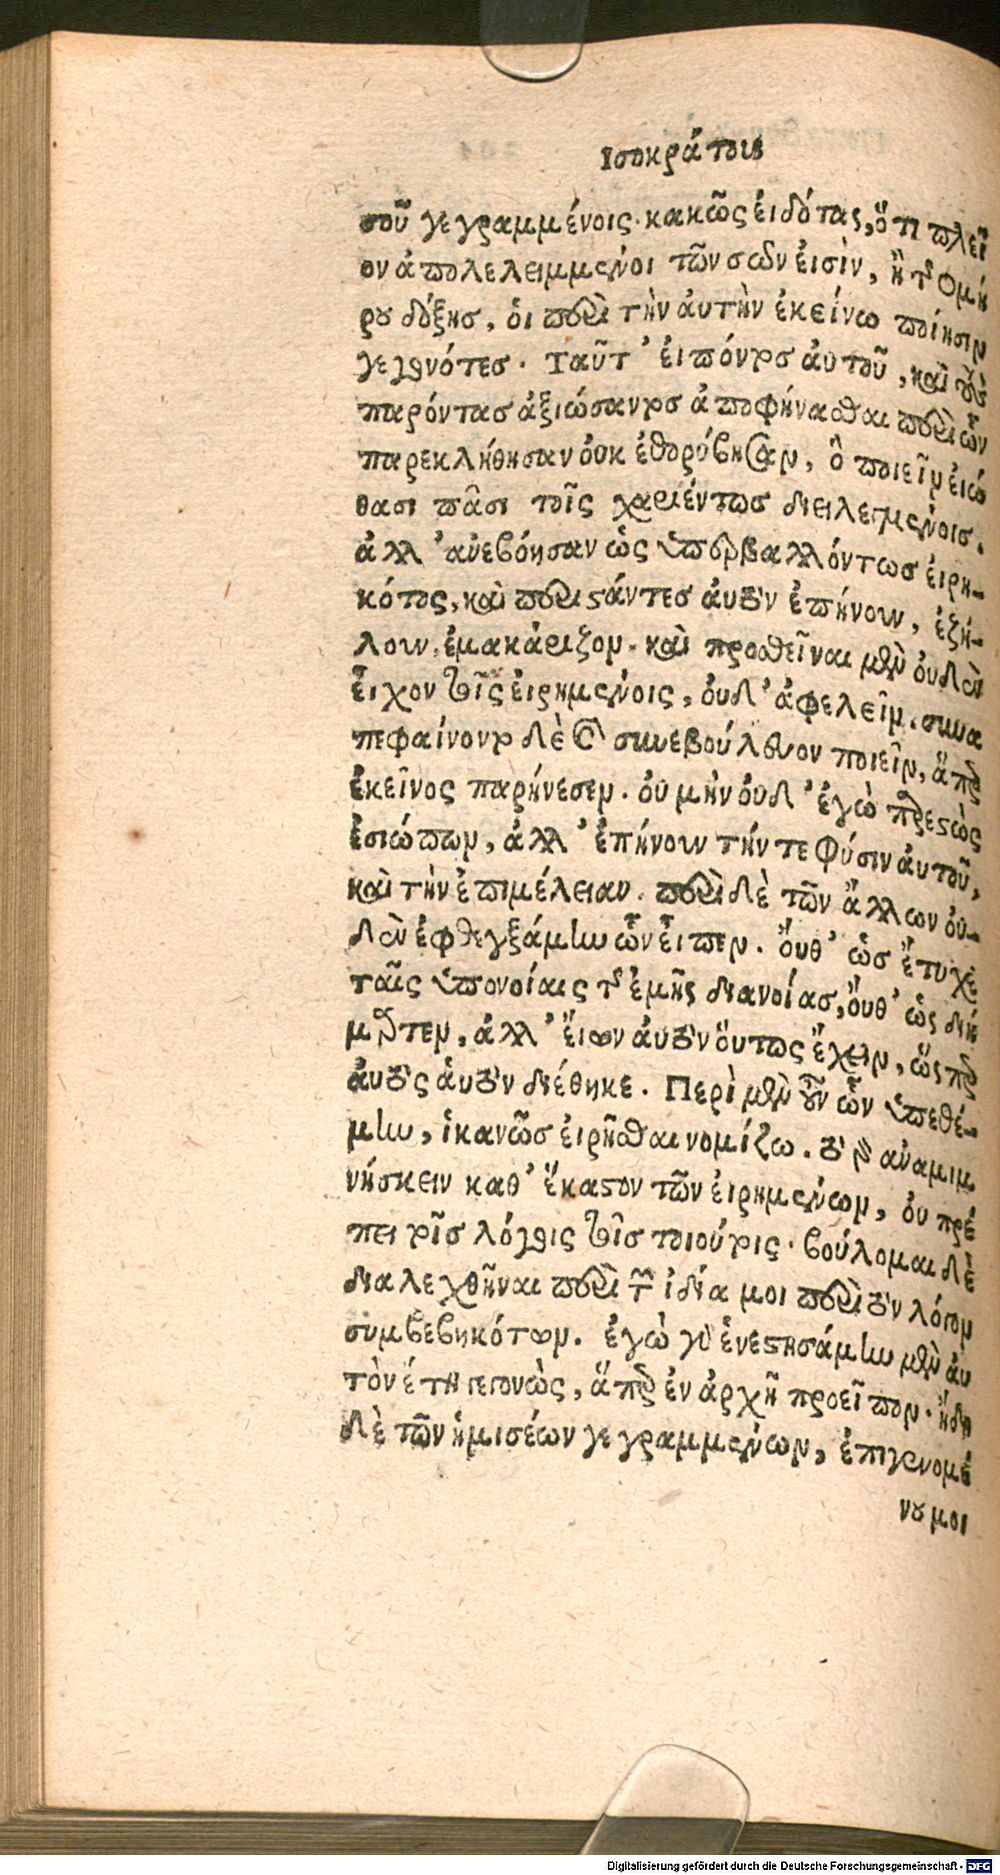 Ισοκράτους
σοῦ γεγραμμένοις κακῶς ἐιδότας, ὅτι πλεῖ
ον ἀπολελειμμένοι τῶν σῶν ἐισὶν, ἢ τῆς Ομή
ρου δόξης, ὁι περὶ τὴν ἀυτὴν ἐκείνω ποίησιν
γεγονότες. Ταῦτ᾽ ἐιπόντος ἀυτοῦ, καὶ τοὺς
παρόντας ἀξιώσαντος ἀποφήνασθαι περὶ ὧν
παρεκλήθησαν ὀυκ ἐθορύβησαν, ὃ ποιεῖν ἐιώ
θασι πᾶσι τοῖς χαριέντως διειλεγμένοις.
ἀλλ᾽ ἀνεβόησαν ὡς ὑπερβαλλόντως ἐιρη-
κότος, καὶ περιστάντες ἀυτὸν ἐπήνουν, ἐζή-
λουν, ἐμακάριζον. καὶ προσθεῖναι μὲν ὀυδὲν
ἐῖχον τοῖς ἐιρημένοις, ὀυδ᾽ ἀφελεῖν. συνα
πεφαίνοντο δὲ καὶ συνεβούλευον ποιεῖν, ἅπερ
ἐκεῖνος παρήνεσεν. ὀυ μὴν ὀυδ᾽ ἐγὼ παρεστὼς
ἐσιώπων, ἀλλ᾽ ἐπήνουν τήν τε φύσιν ἀυτοῦ,
καὶ τὴν ἐπιμέλειαν. περὶ δὲ τῶν ἄλλων ὀυ-
δὲν ἐφθεγξάμην ὧν ἐῖπεν. ὄυθ᾽ ὡς ἔτυχε
ταῖς ὑπονοίαις τῆς ἐμῆς διανοίας, ὄυθ᾽ ὡς διή
μαρτεν, ἀλλ᾽ ἔιων ἀυτὸν ὅυτως ἔχειν, ὥσπερ
ἀυτὸς ἁυτὸν διέθηκε. Περὶ μὲν οὖν ὧν ὑπεθέ-
μην, ἱκανῶς ἐιρῆσθαι νομίζω. τὸ γὰρ ἀναμιμ
νήσκειν καθ᾽ ἕκαστον τῶν ἐιρημένων, ὀυ πρέ
πει τοῖς λόγοις τοῖς τοιούτοις. βούλομαι δὲ
διαλεχθῆναι περὶ τῶν ἰδία μοι περὶ τὸν λόγον
συμβεβηκότων. ἐγὼ γὰρ ἐνεστησάμην μὲν ἀυ
τὸν ἔτη γεγονὼς, ἅπερ ἐν ἀρχῇ προεῖπον. ἤδη
δὲ τῶν ἡμισέων γεγραμμένων, ἐπιγενομέ
νου μοι
Digitalisierung gefördert durch die Deutsche Forschungsgemeinschaft - DFG